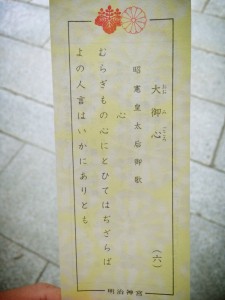 大御心
おおみごころ
(六)
昭憲皇太后御歌
心
むらぎもの心にとひてはぢざらば
よの人言はいかにありとも
明治神宮